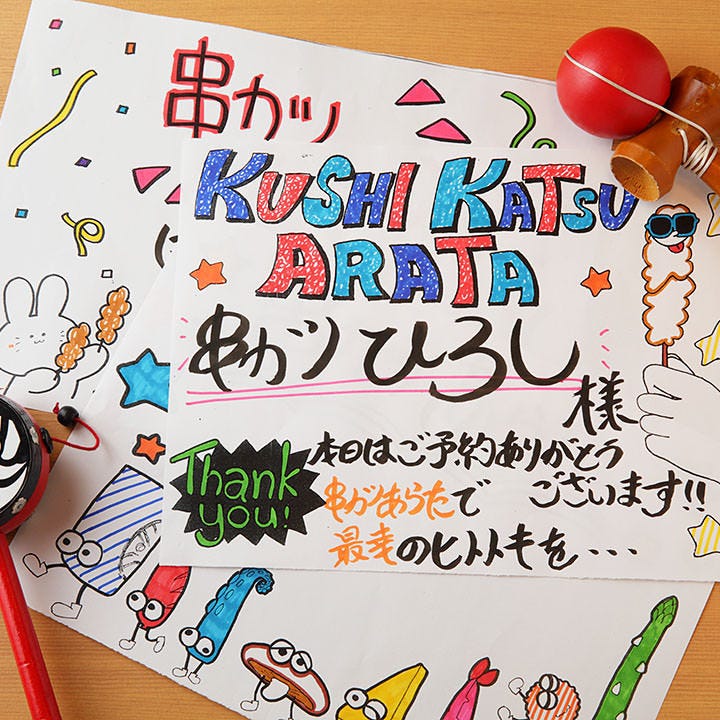 串カツ
KUSHI KATSU
ARATA
串かつ ひろし
様
Thank
you!
本日はご予約ありがとう
ございます!!
串かつあらたで
最幸のヒトトキを・・・